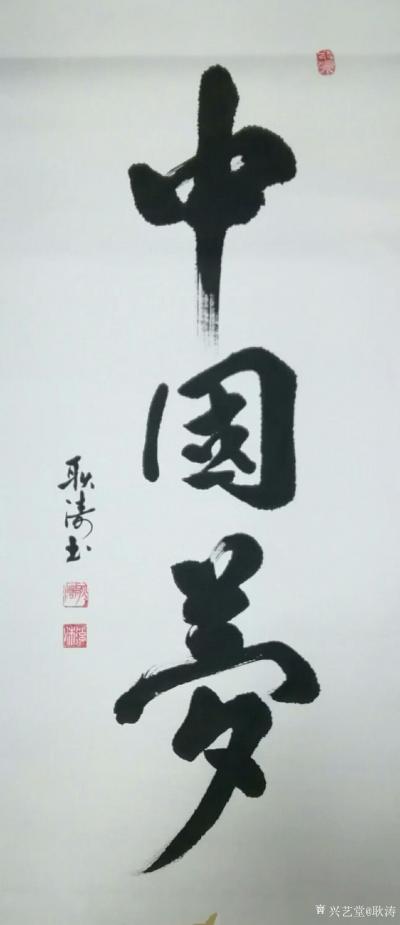 中國夢
耿涛书
兴艺堂@耿涛